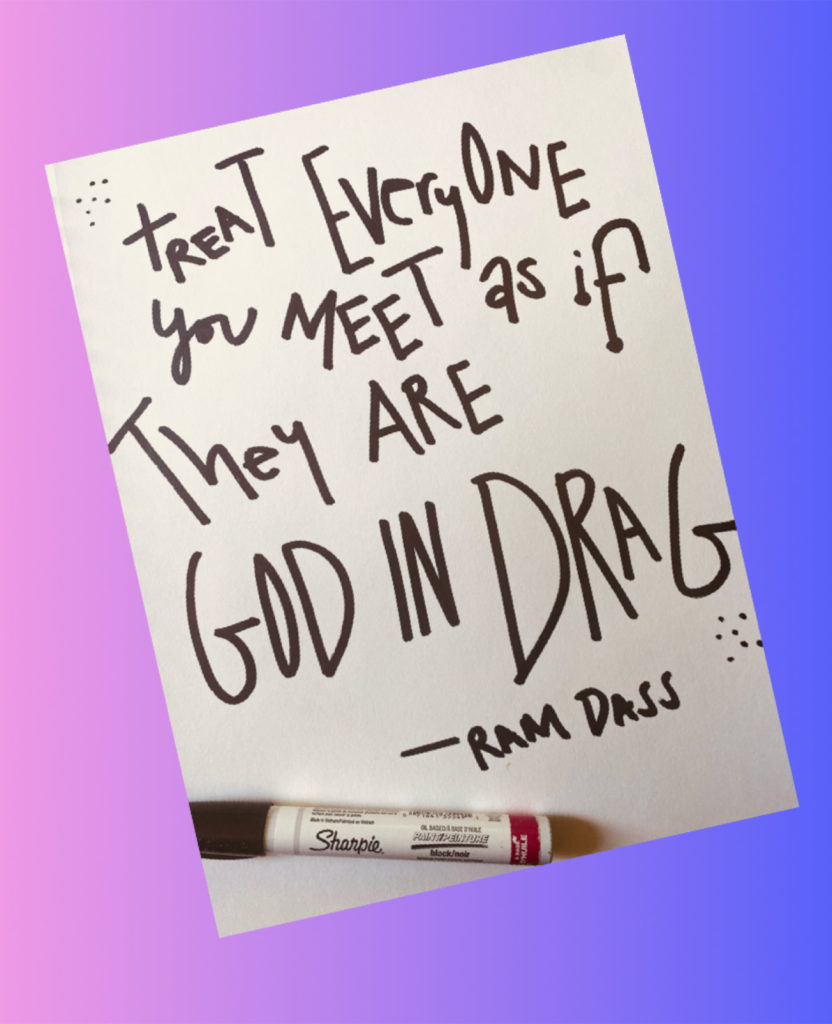 TREAT EveryONE
you MEET as if
They ARE
GOD IN DRAG
—RAM DASS
Sharpie
OIL BASED/À BASE D'HUILE
PAINT/PEINTURE
black/noir